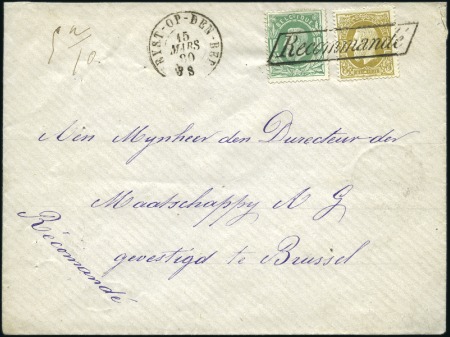 HEYST-OP-DEN-BERG
15
MARS
80
BELGIQUE
Recommandé
Aen Mynheer den Durecteur der
Maatschappy A G
gevestigd te Brussel
Récomandé